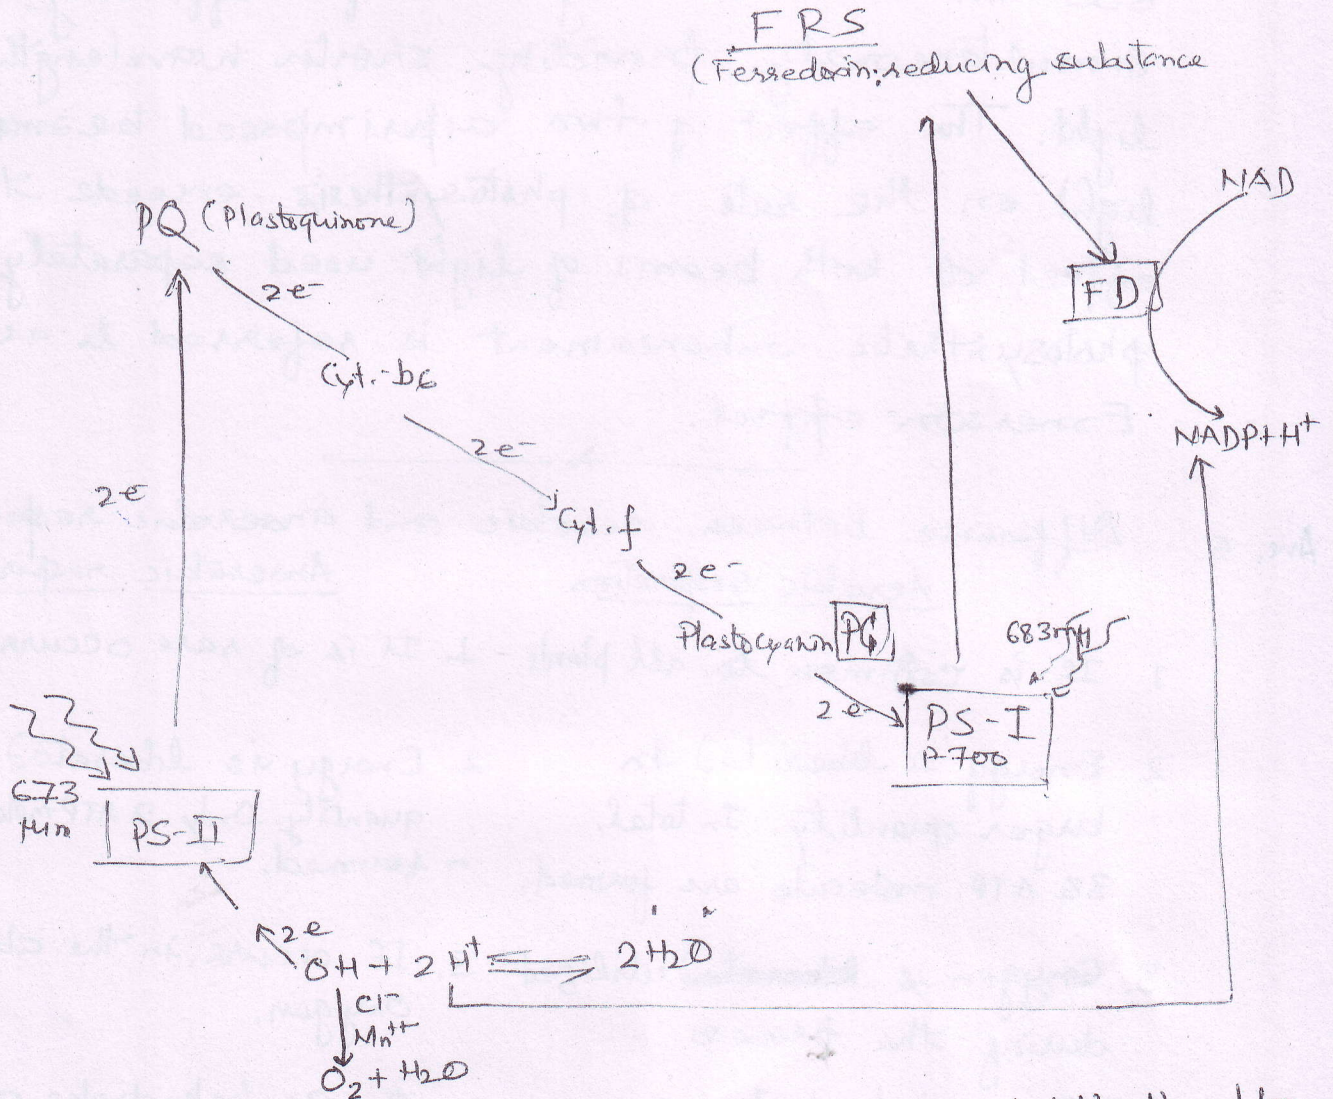 FRS
(Ferredoxin; reducing substance
NAD
PQ (Plastoquinone)
FD
2e-
Cyt.-b6
NADP+H+
2e-
2e
Cyt. f
2e-
Plastocyanin PC
683
2e-
PS-I
P 700
673
PS-II
2e
OH + 2H+ 2H2O
Cl-
Mn++
O2 + H2O